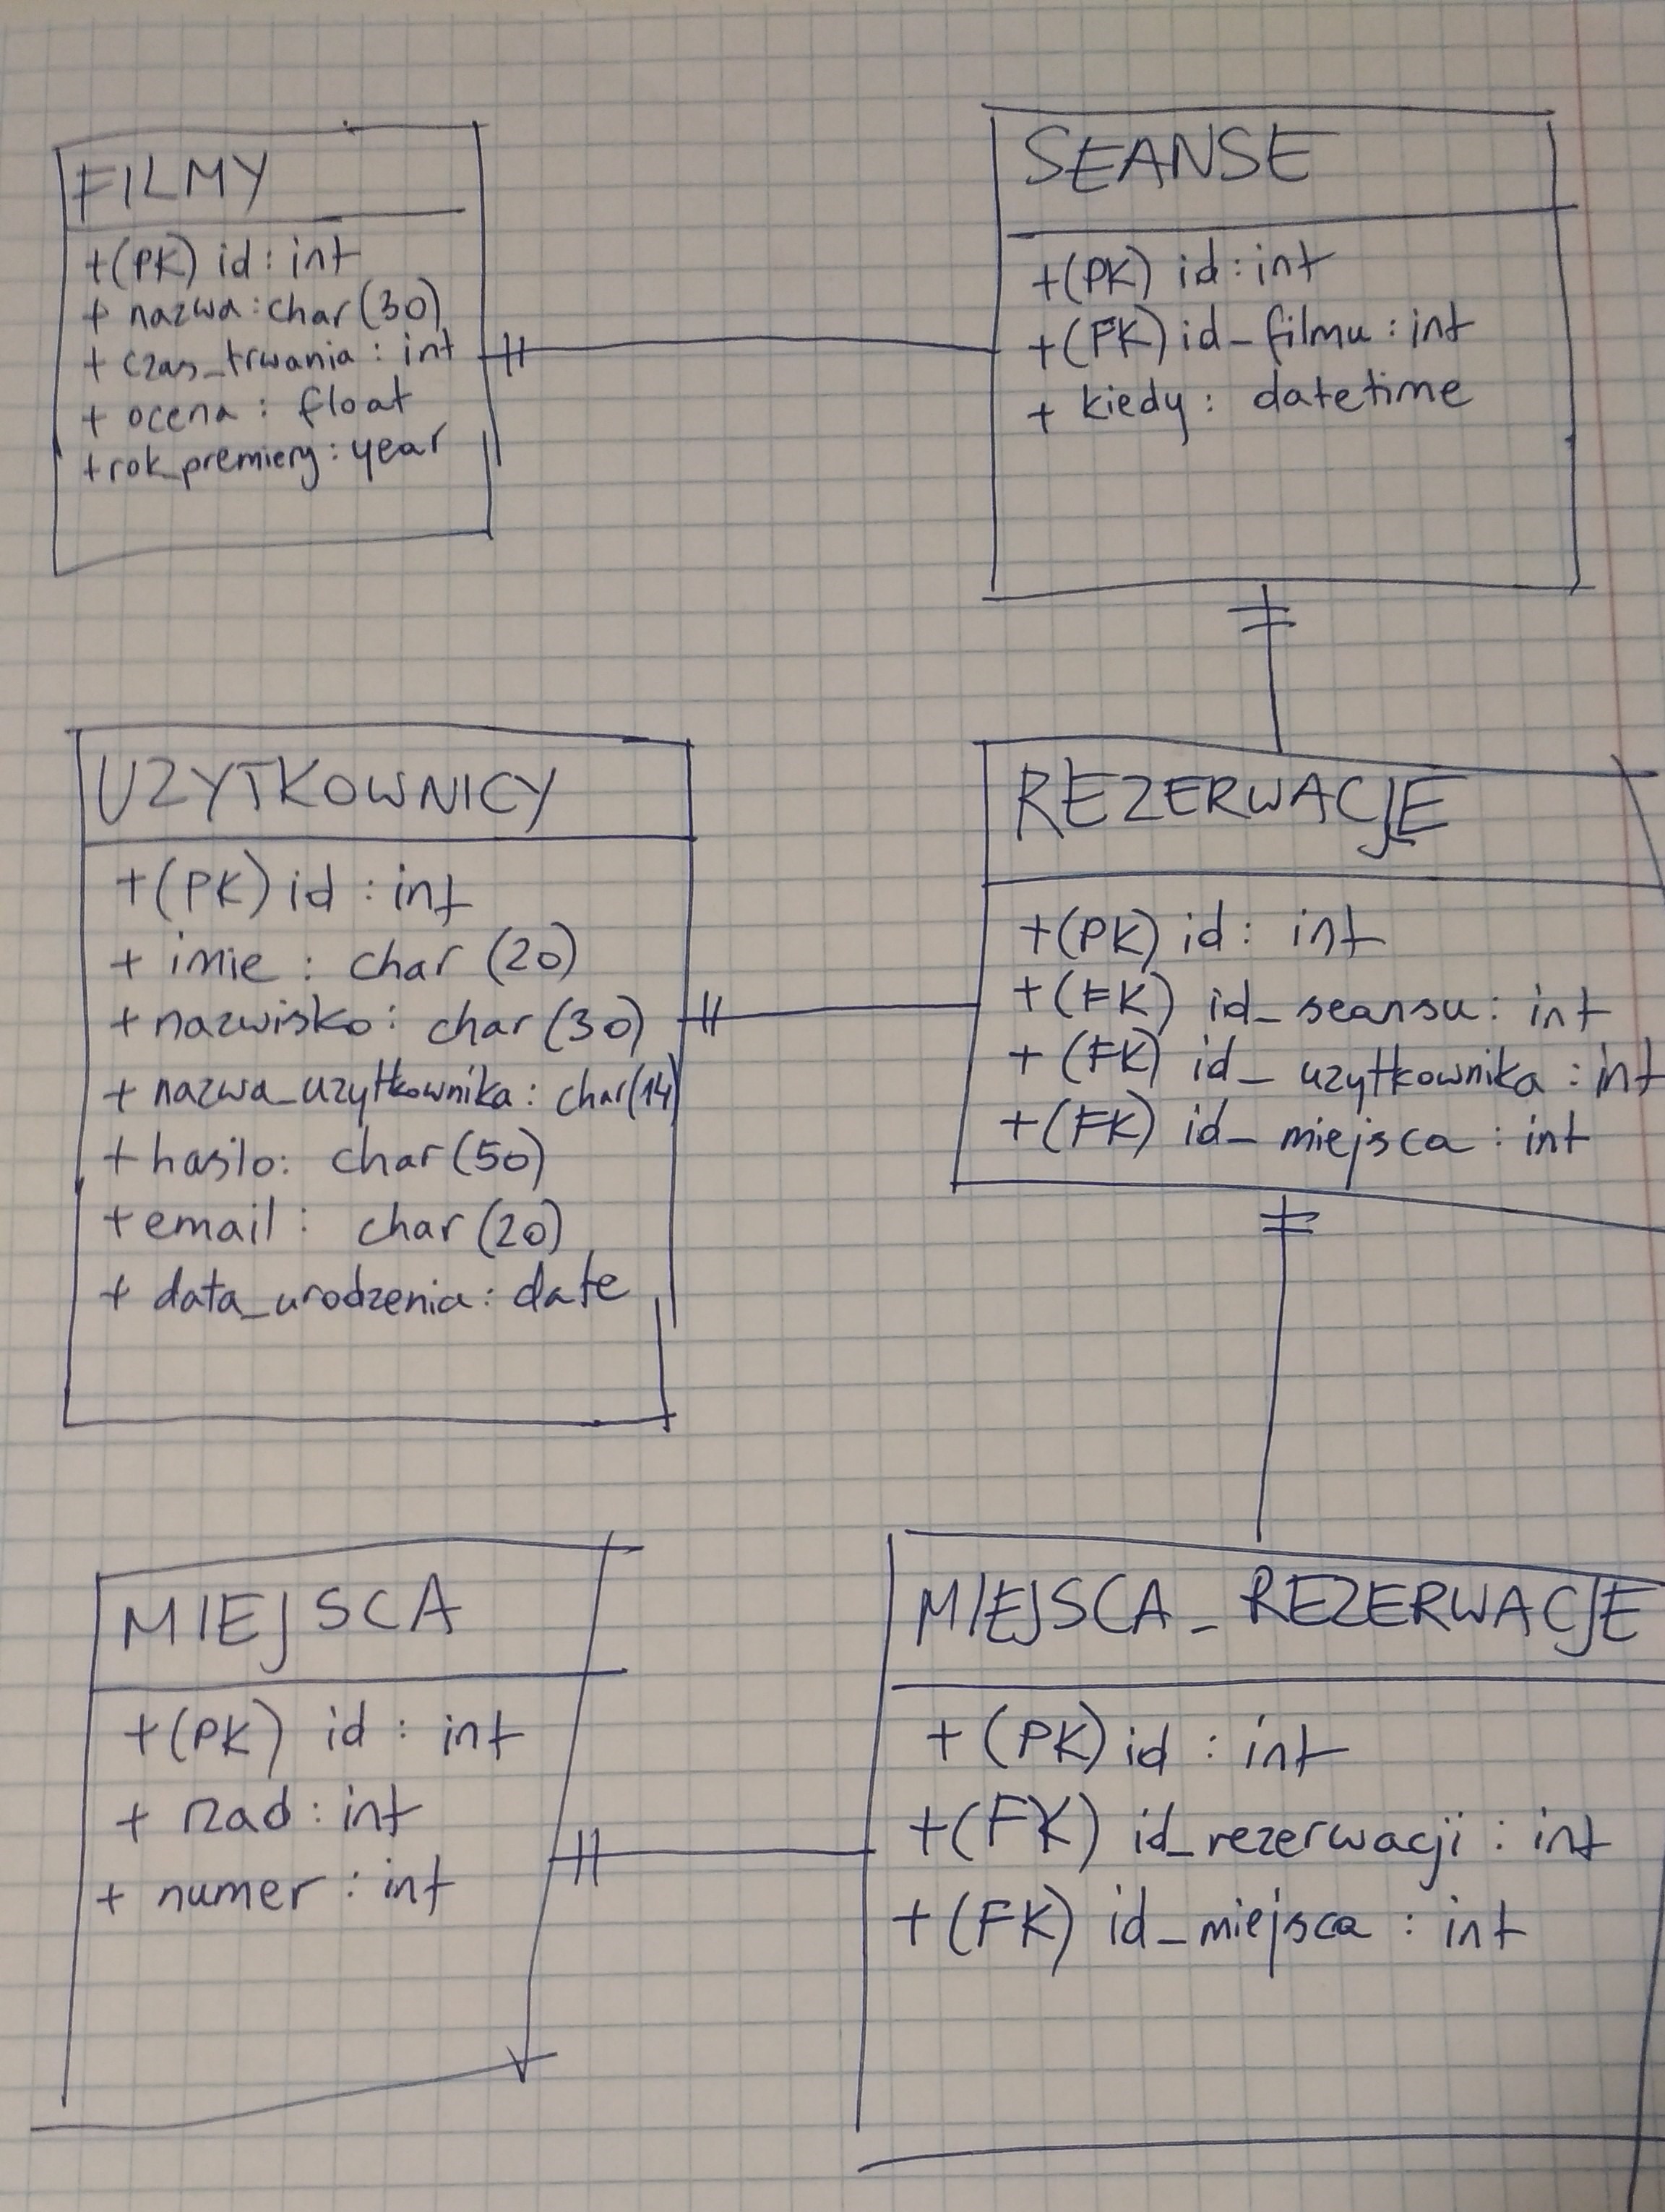 FILMY
+(PK) id: int
+ nazwa: char(30)
+ czas_trwania: int
+ ocena: float
+rok_premiery: year
SEANSE
+(PK) id: int
+(FK) id_filmu: int
+ kiedy: datetime
UZYTKOWNICY
+(PK) id: int
+ imie: char (20)
+ nazwisko: char (30)
+ nazwa_uzytkownika: char(14)
+ haslo: char(50)
+ email: char (20)
+ data_urodzenia: date
REZERWACJE
+(PK) id: int
+(FK) id_seansu: int
+ (FK) id_uzytkownika: int
+(FK) id_miejsca: int
MIEJSCA
+(PK) id: int
+ rzad: int
+ numer: int
MIEJSCA_REZERWACJE
+ (PK) id: int
+(FK) id_rezerwacji: int
+(FK) id_miejsca: int